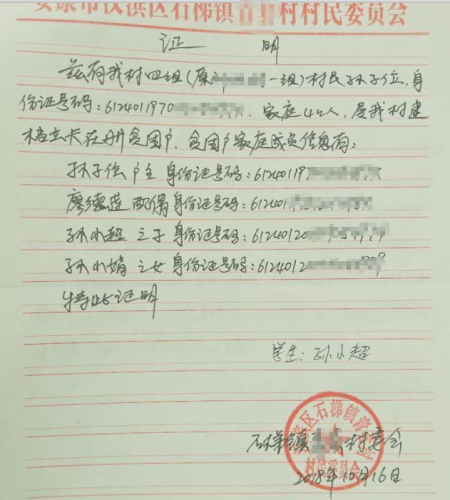 安康市汉滨区石梯镇青村村民委员会
证 明
兹有我村四组(原一组)村民孙子位,身
份证号码:6124011970,家庭4口人,是我村建
档立卡在册贫困户,贫困户家庭成员信息有:
孙子位 户主 身份证号码:61240119
廖德莲 配偶 身份证号码:61240
孙小超 之子 身份证号码:6124012
孙小娟 之女 身份证号码:6124012
特此证明
学生:孙小超
石梯镇 村委会
2018年10月16日
区石梯镇青
村民委员会